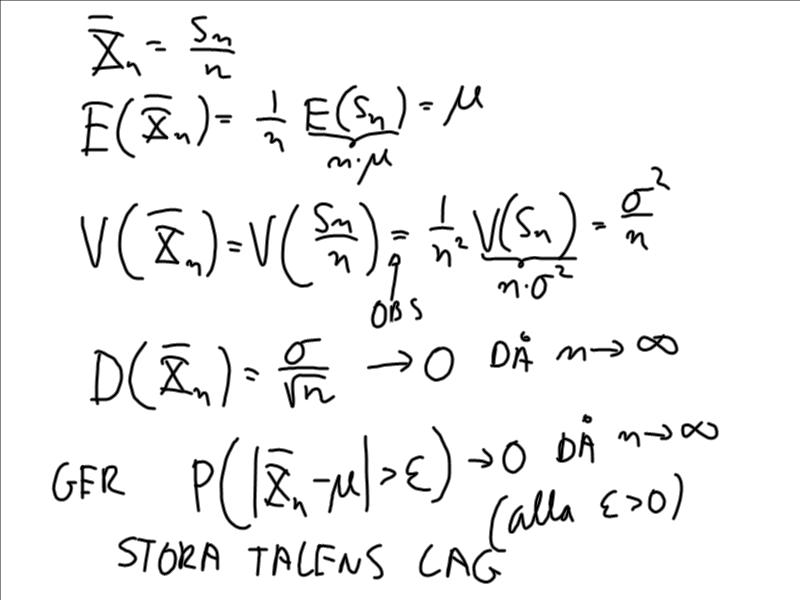 X̄ₙ = Sₙ/n
E(X̄ₙ) = 1/n E(Sₙ) = μ
n·μ
V(X̄ₙ) = V(Sₙ/n) = 1/n² V(Sₙ) = σ²/n
n·σ²
OBS
D(X̄ₙ) = σ/√n → 0 DÅ n→∞
GER P(|X̄ₙ-μ|>ε) → 0 DÅ n→∞
(alla ε>0)
STORA TALENS LAG